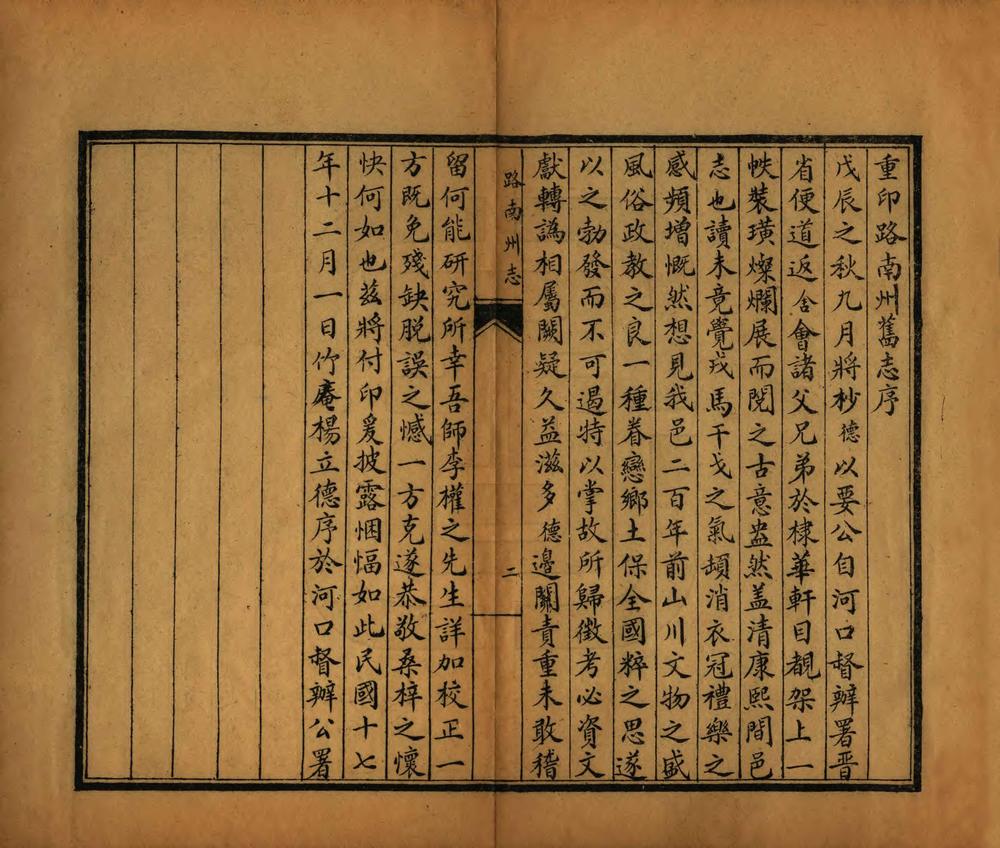 重印路南州舊志序
戊辰之秋九月將杪德以要公自河口督辦署晋
省便道返舍會諸父兄弟於棣華軒目覩架上一
帙裝璜燦爛展而閱之古意盎然盖清康熙間邑
志也讀未竟覺戎馬干戈之氣頓消衣冠禮樂之
感頻增慨然想見我邑二百年前山川文物之盛
風俗政教之良一種眷戀鄉土保全國粹之思遂
以之勃發而不可遏特以掌故所歸徵考必資文
獻轉譌相屬闕疑久益滋多德邊關責重未敢稽
路南州志
二
留何能研究所幸吾師李權之先生詳加校正一
方既免殘缺脫誤之憾一方克遂恭敬桑梓之懷
快何如也茲將付印爰披露悃愊如此民國十七
年十二月一日竹庵楊立德序於河口督辦公署